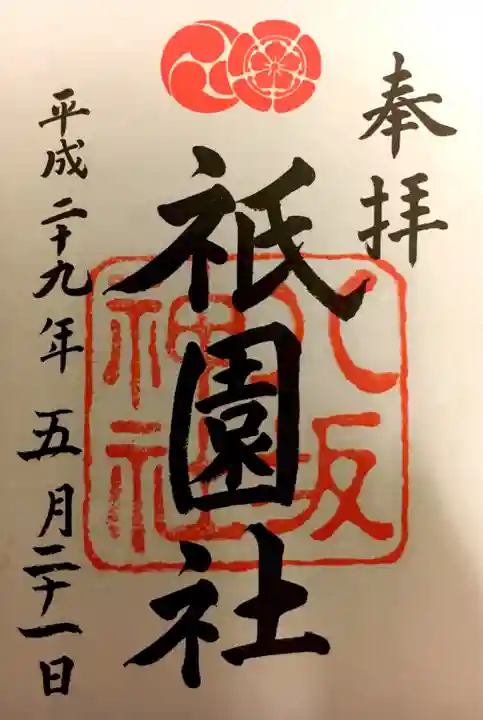 奉拝
祇園社
八坂
神社
平成二十九年五月二十一日